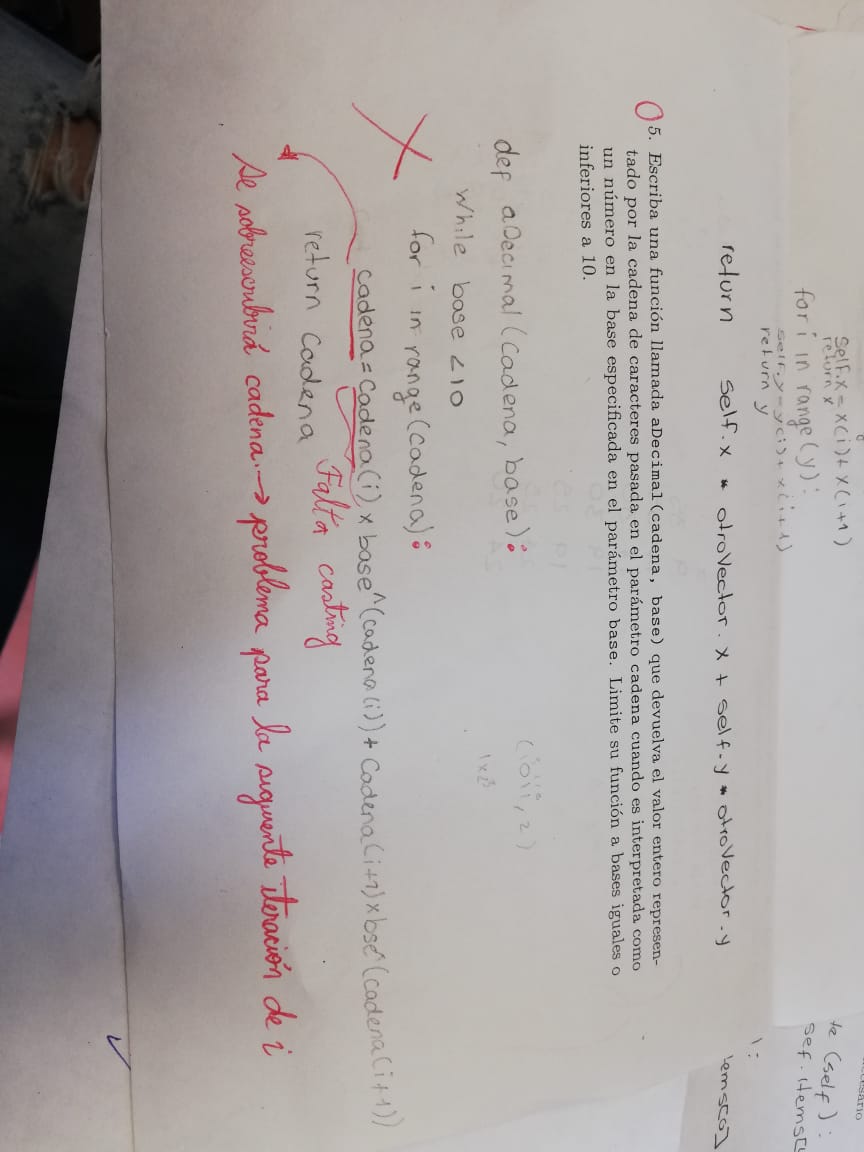 self.x = x(i) + x(i+1)
return x
for i in range(y):
self.y = y(i) + x(i+1)
return y
return self.x * otroVector.x + self.y * otroVector.y
te (self):
sef.items[
):
tems[0]
0 5. Escriba una función llamada aDecimal(cadena, base) que devuelva el valor entero represen-
tado por la cadena de caracteres pasada en el parámetro cadena cuando es interpretada como
un número en la base especificada en el parámetro base. Limite su función a bases iguales o
inferiores a 10.
(1011, 2)
1x2³
def aDecimal(cadena, base):
While base <10
for i in range(cadena):
cadena = cadena(i) x base^(cadena(i)) + cadena(i+1) x bse^(cadena(i+1))
Falta casting
return cadena
Se sobreescribirá cadena. → problema para la siguiente iteración de i